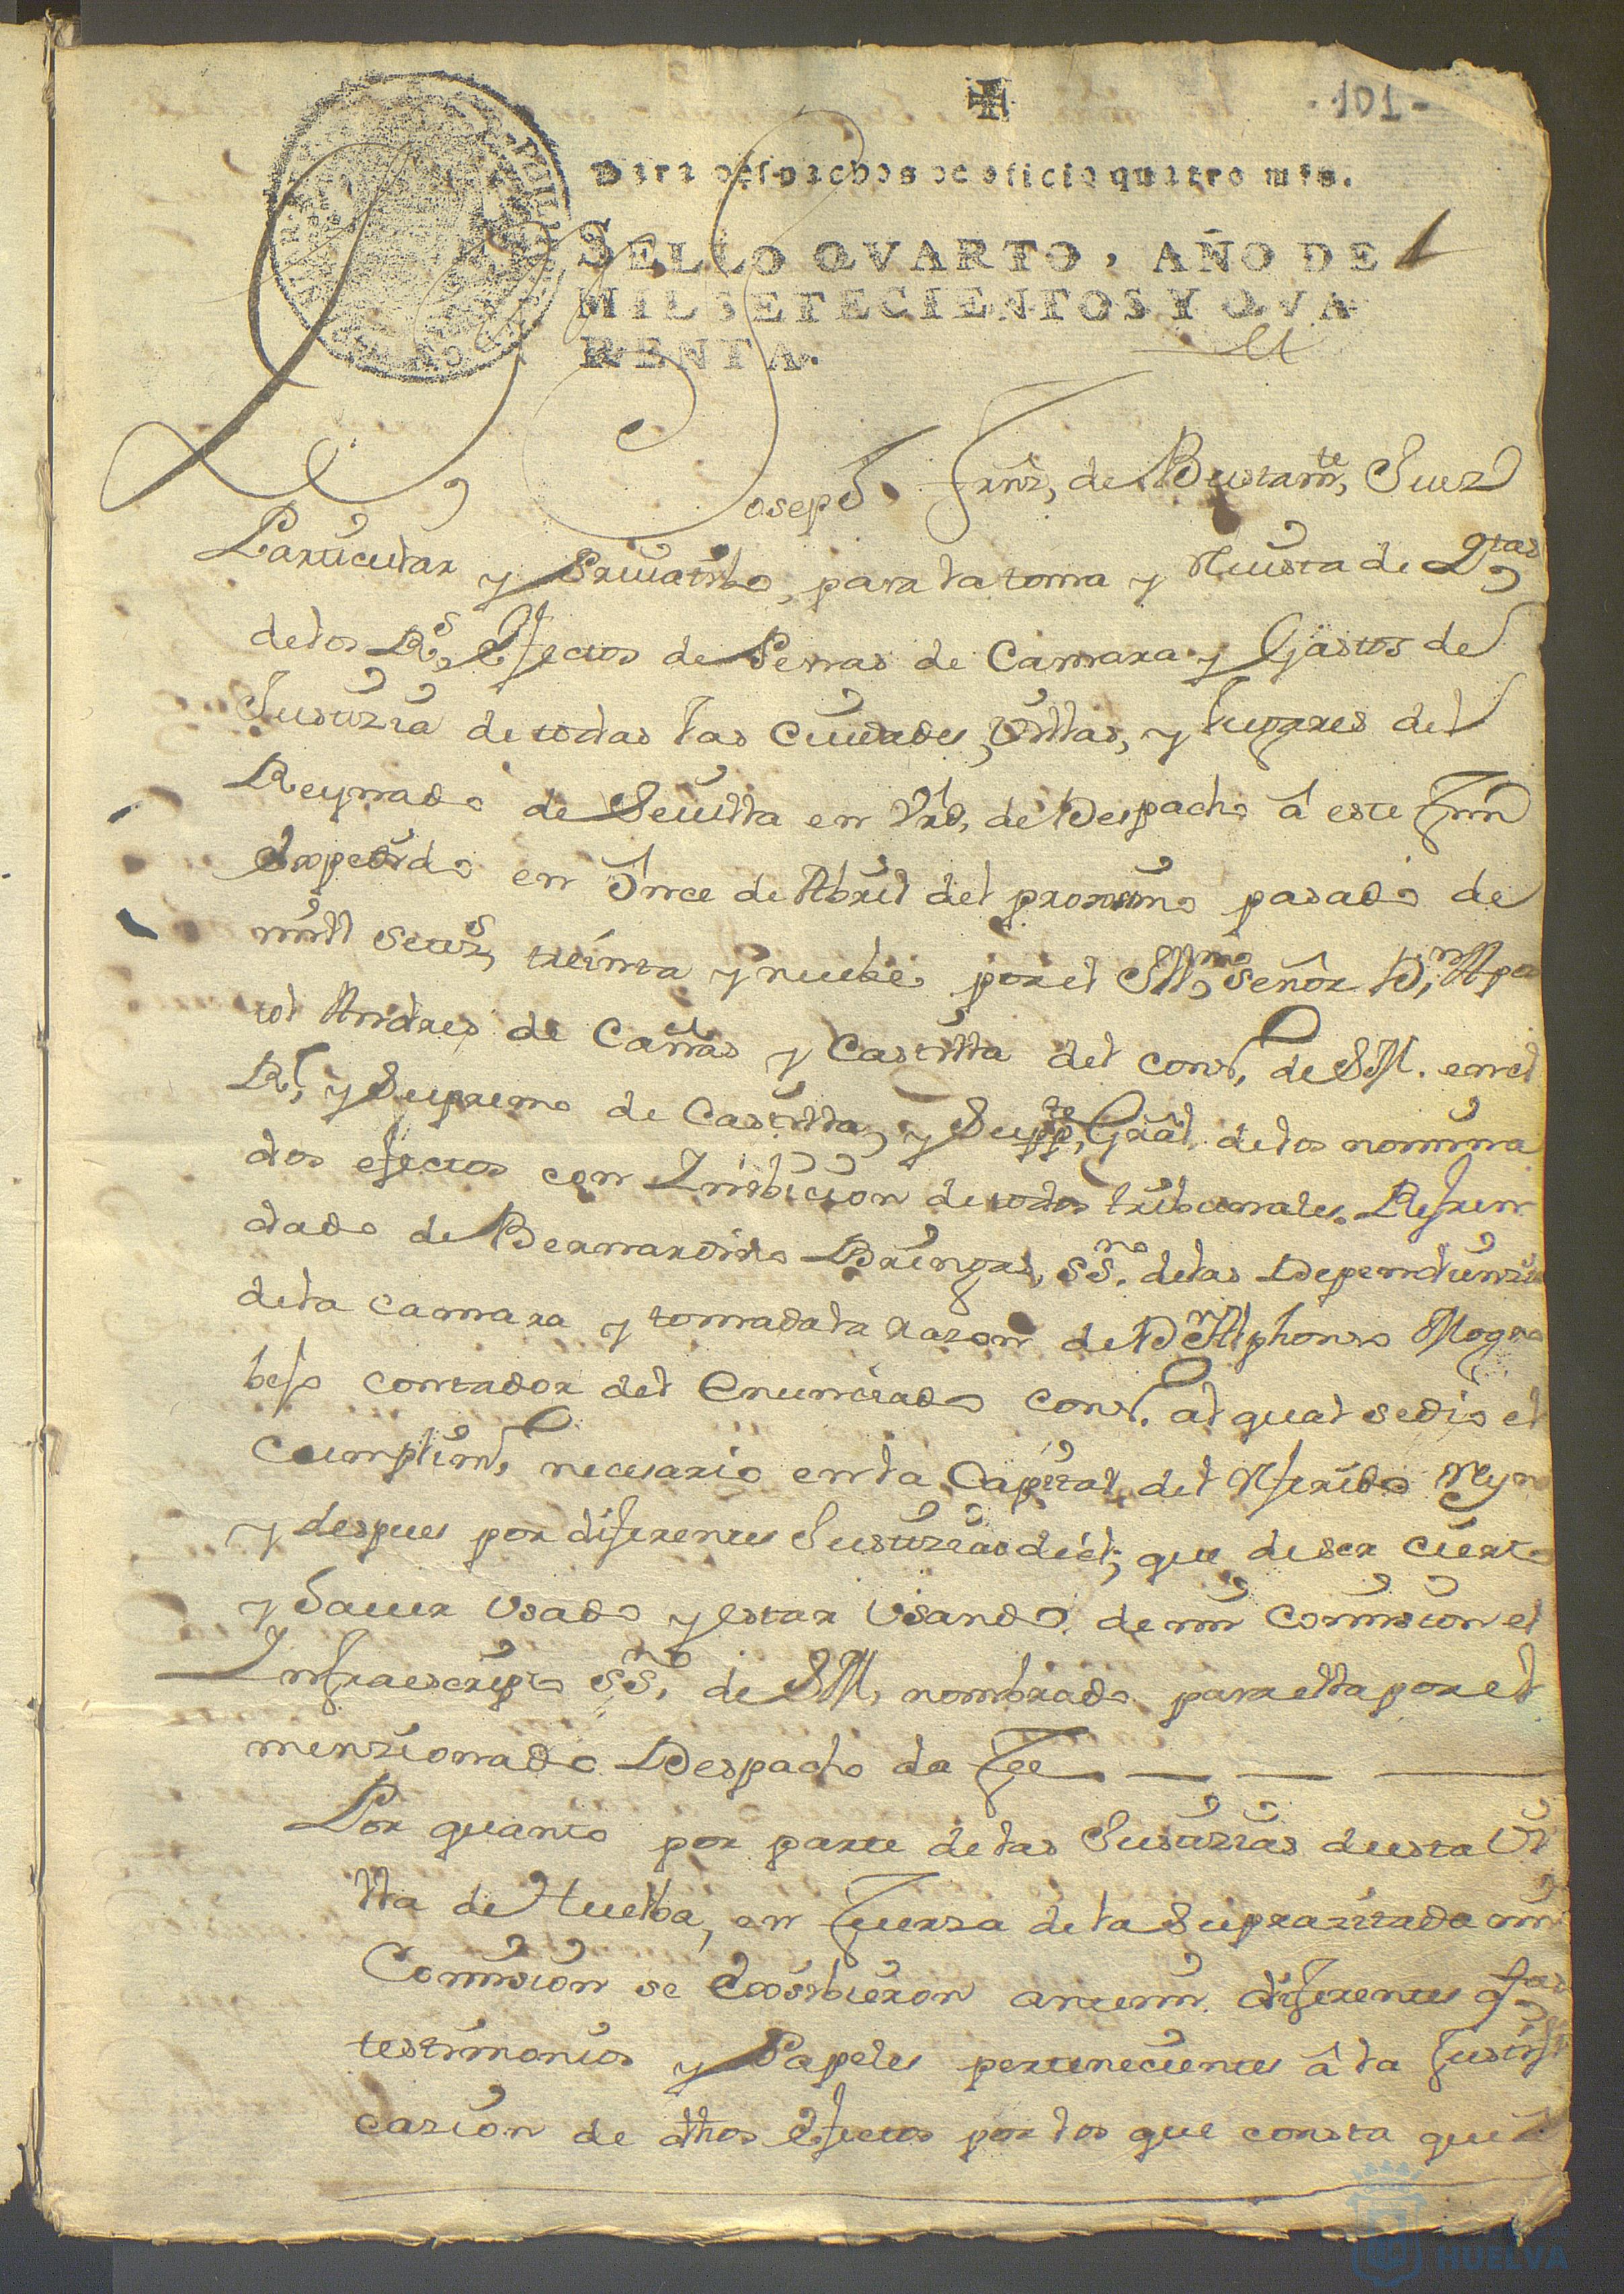 101-
Para despachos de oficio quatro mrs.
SELLO QVARTO, AÑO DE
MIL SETECIENTOS Y QVA
RENTA.
Dn Joseph Frnz, de Bustamte, Juez
Particular y Privatibo, para la toma y Reuista de Qtas
de los Rs, Efectos de Penas de Camara y Gastos de
Justizia de todas las Ciudades, Villas, y lugares del
Reynado de Seuilla en Vrd, de Despacho â este fin
Expedido en Once de Abril del proximo pasado de
mill setezs, treinta y nuebe por el Illmo, Señor Dn, Apos
tol Andres de Cañas y Castilla del Cons, de SM. en el
Rl, y Supremo de Castilla, y Suppte, Gral. de los nomina
dos efectos con Inibicion de todos tribunales. Refren
dado de Bernardino Bringas, SSno. de las Dependenzias
de la Camara y tomada la razon de Dn Alphonso Mogro
bejo Contador del Enunciado Cons. al qual se dio el
Cumplim, necesario en la Capital del Referido Reyno
y despues por diferentes Justizias de el; que de ser Cierto
y hauer Vsado y estar Vsando de mi Comision el
Infraescripto SSno, de SM, nombrado para ella por el
menzionado Despacho da fee
Por quanto por parte de las Justizias de esta Vi
lla de Huelba, en fuerza de la Suprazitada mi
Comision se Exsibieron ante mi diferentes qtas
testimonios y Papeles pertenecientes â la Justifi
cazion de dhos Efectos por los que consta que
HUELVA